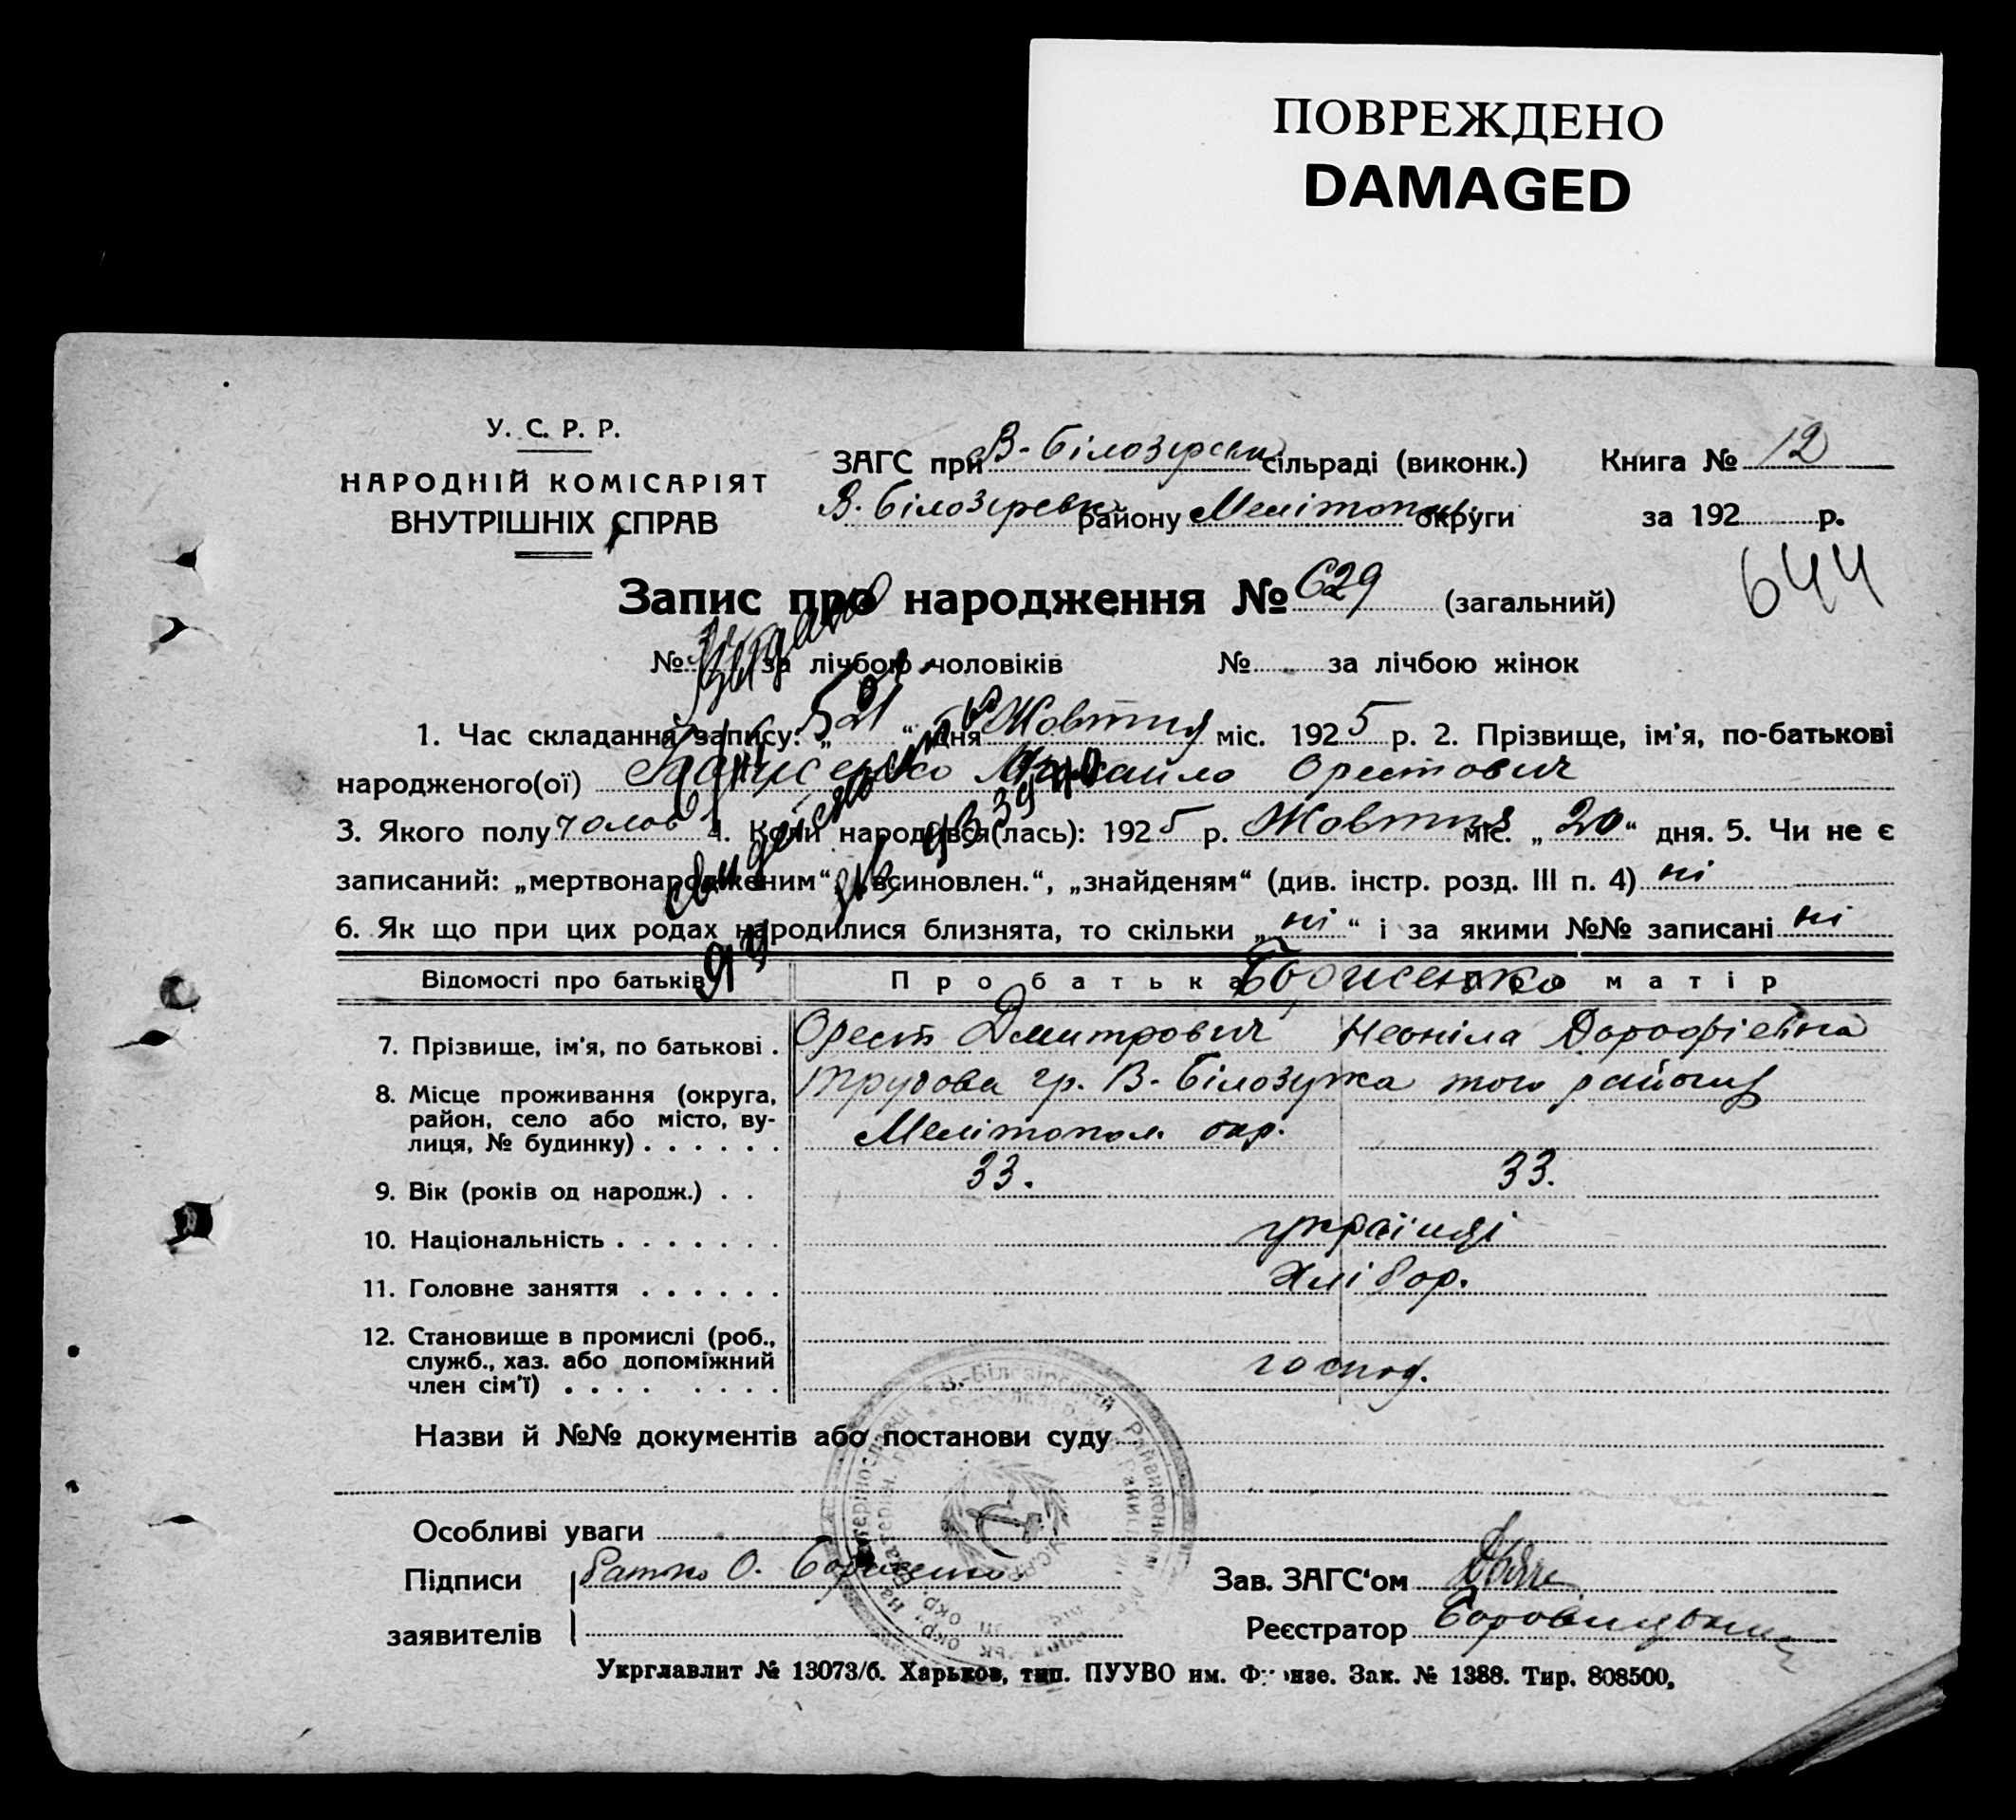 ПОВРЕЖДЕНО
DAMAGED
У. С. Р. Р.
НАРОДНІЙ КОМІСАРІЯТ
ВНУТРІШНІХ СПРАВ
ЗАГС при В-Білозерськ сільраді (виконк.)
В. Білозеревк району Мелітопол. округи
Книга № 12
за 192 р.
644
Запис про народження № 629 (загальний)
№ за лічбою чоловіків № " за лічбою жінок
1. Час складання запису: „ 21 “ дня Жовтня міс. 1925 р. 2. Прізвище, ім'я, по-батькові
народженого(ої) Михайло Орестович
3. Якого полу чолов 4. Коли народився(лась): 1925 р. Жовтня міс. „ 20 “ дня. 5. Чи не є
записаний: „мертвонародженим“, „всиновлен.“, „знайденям“ (див. інстр. розд. III п. 4) ні
6. Як що при цих родах народилися близнята, то скільки „ ні “ і за якими №№ записані ні
Выдано
свидетельство
Відомості про батьків
Про батька
Про матір
7. Прізвище, ім'я, по батькові .
Орест Дмитрович Неоніла Дорофієвна
8. Місце проживання (округа,
район, село або місто, ву-
лиця, № будинку) . . . . . .
гр. В-Білозурка того району
Мелітопол. окр.
9. Вік (років од народж.) . .
33. 33.
10. Національність . . . . . . .
українці
11. Головне заняття . . . . . .
Хлібор.
12. Становище в промислі (роб.,
служб., хаз. або допоміжний
член сім'ї) . . . . . . . .
господ.
Назви й №№ документів або постанови суду
Особливі уваги
Підписи
заявителів
О.
Зав. ЗАГС‘ом
Реєстратор
Укрглавлит № 13073/б. Харьков, тип. ПУУВО им. Фрунзе. Зак. № 1388. Тир. 808500,